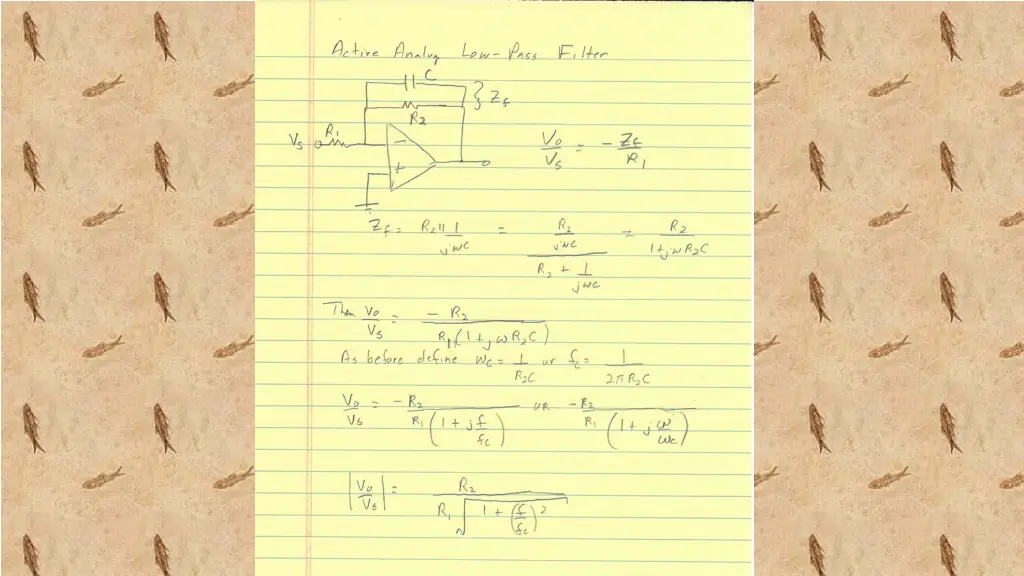 Active Analog Low-Pass Filter
C
} Zf
R2
Vs R1
−
+
Vo/Vs = − Zf/R1
Zf = R2 || 1/jωC = (R2/jωC)/(R2 + 1/jωC) = R2/(1+jωR2C)
Then Vo/Vs = −R2/(R1(1+jωR2C))
As before define ωc = 1/R2C or fc = 1/2πR2C
Vo/Vs = −R2/(R1(1 + j f/fc)) OR −R2/(R1(1 + j ω/ωc))
|Vo/Vs| = R2/(R1√(1 + (f/fc)²))